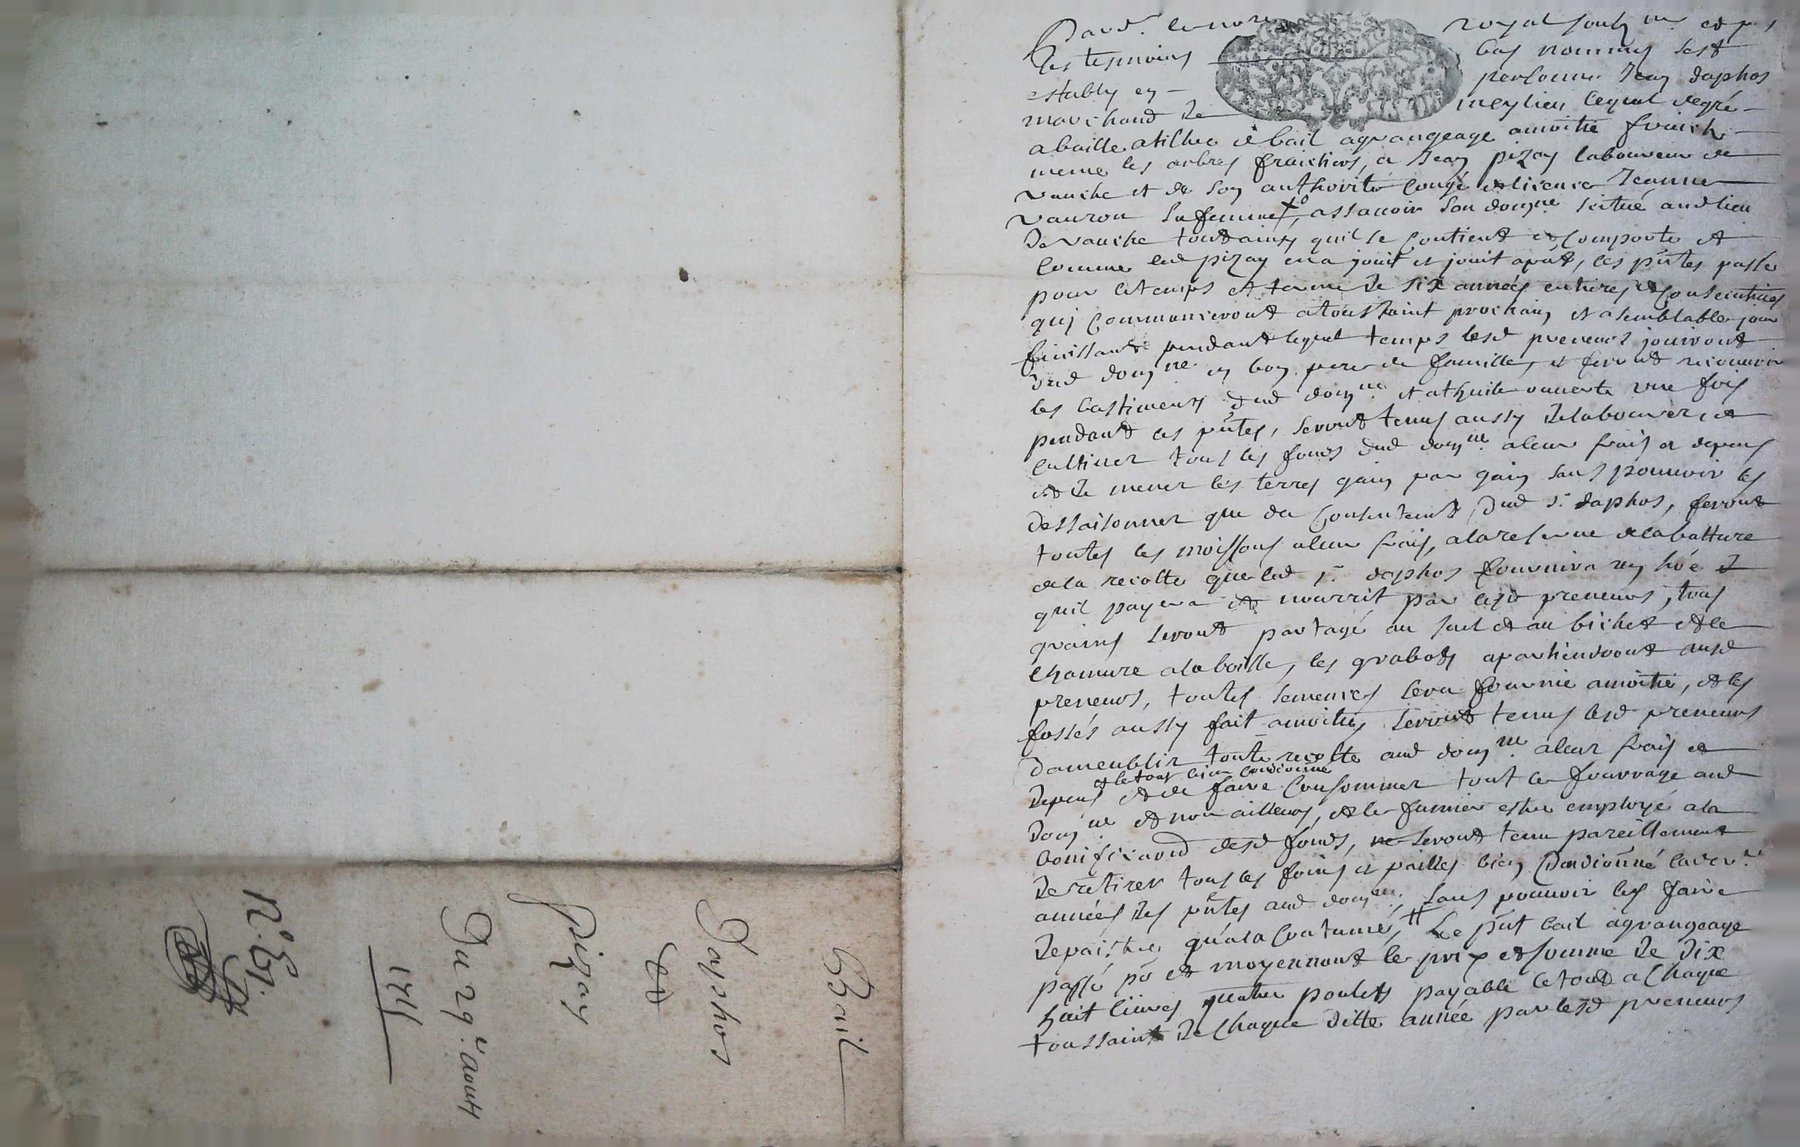 Bail
Daphos
et
pizay
Du 29.e aout
Pard.t le not.re royal soubz.ne et p.nt
les tesmoins bas nommes sest
estably en personne Jean daphos
marchand de lequel degré
abaille atiltre de bail agrangeage amoitié fruicts
meme les arbres fruictiers, a Jean pizay laboureur de
vauche et de son authorité congé et licence Jeanne
vauron sa femme, assavoir son dom.ne scitué aud lieu
de vauche tout ainsy quil se contient et comporte et
comme led pizay en a jouit et jouit apnt, les pntes passé
pour le temps et terme de six années entieres et consecutives
quj commanceront a toussaint prochain et a semblable jour
finissant pendant lequel temps lesd preneurs jouiront
dud dom.ne en bon pere de famille, et feront recouvrir
les bastiments dud dom.ne et athuile ouverte une fois
pendant ces pntes, seront tenus aussy de labourer et
cultiver tous les fonds dud dom.ne aleur frais et depens
et de mener les terres gain par gain sans pouvoir les
dessaisonner que du consentemt dud s.r daphos, feront
toutes les moissons aleur frais, ala reserve de la batture
de la recolte que led s.r daphos fournira
quil payera et nourrit par lesd preneurs, tous
grains seront partagé au suel et au bichet et le
chanvre ala boille, les grabots apartiendront ausd
preneurs, toutes semences sera fournie amoitié, et les
fossés aussy fait amoitié seront tenus lesd preneurs
dameublir toute recolte aud dom.ne aleur frais et
et le tout bien condionné
depens et de faire consommer tout le fourrage aud
dom.ne et non ailleurs, et le fumier estre employé ala
bonificaond desd fonds, seront tenu pareillement
de retirer tous les foins et pailles bien condionné
années des pntes aud dom.ne, sans pouvoir les faire
depaistre qu'ala coutume, # Le pnt bail agrangeage
passé po et moyennant le prix et somme de dix
huit livres quatre poulets payable le tout a chaque
toussaint de chaque ditte année par lesd preneurs